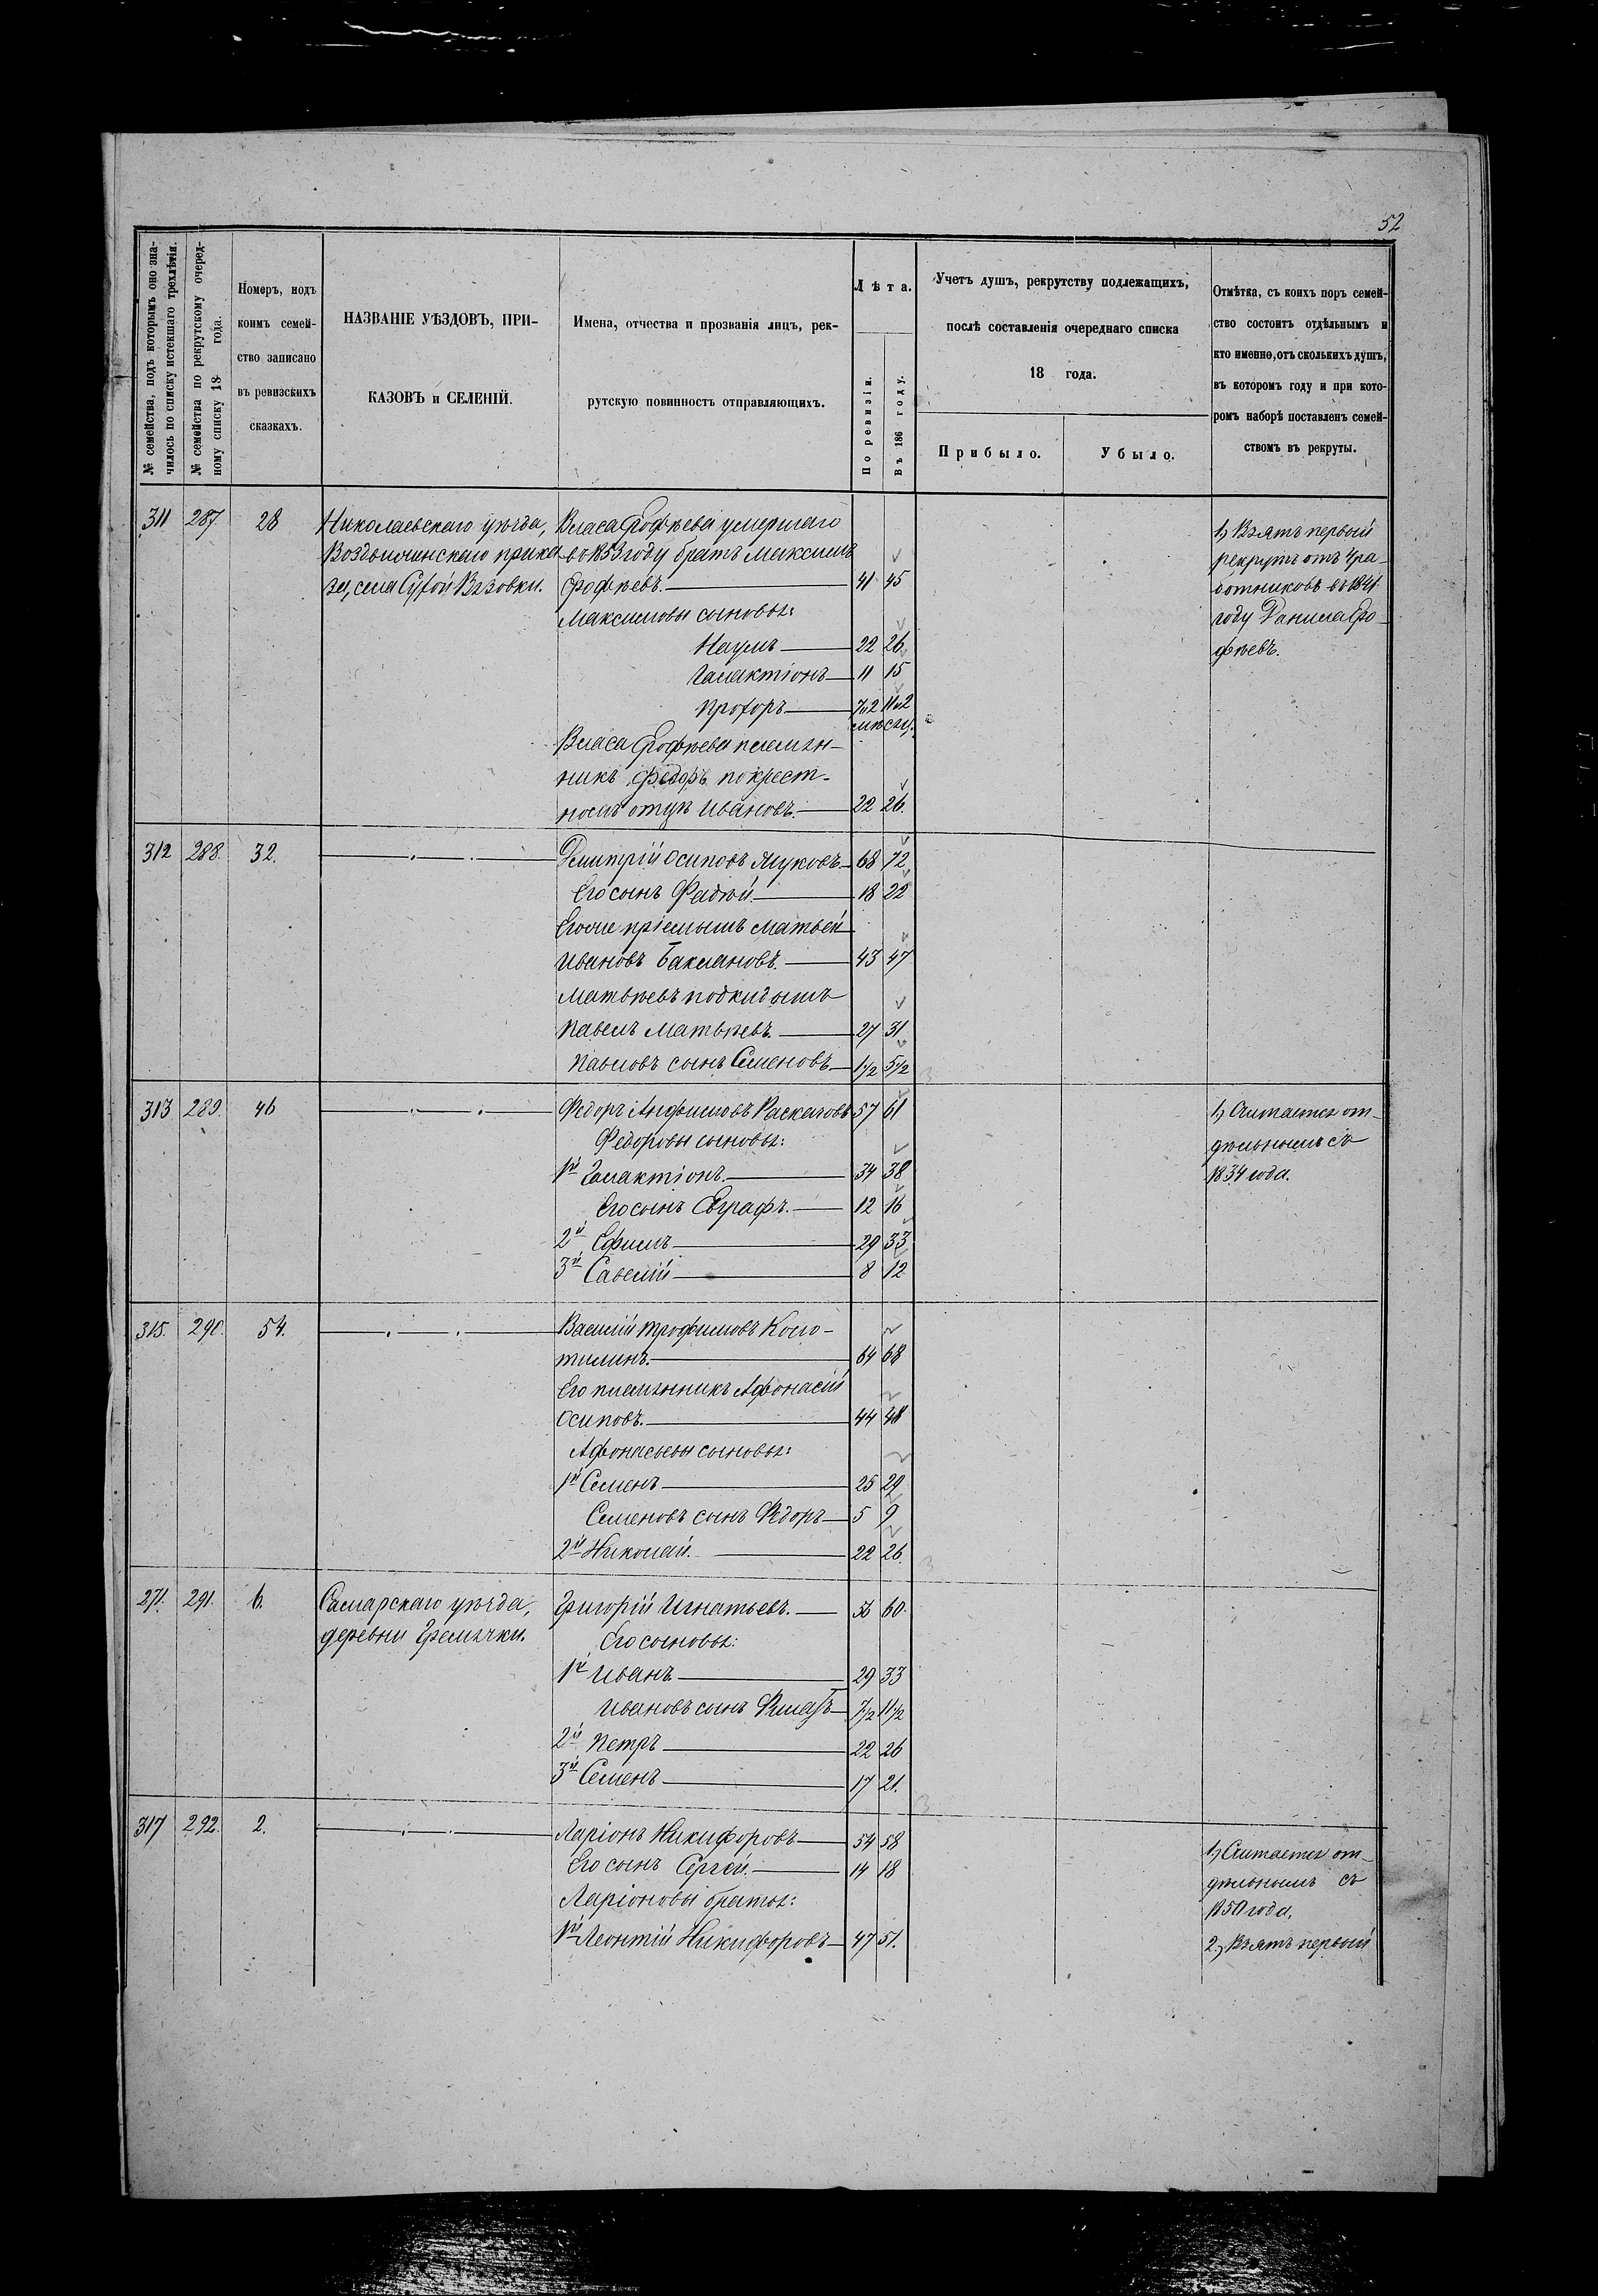 52
№ семейства, подъ которымъ оно зна-
чилось по списку истекшаго трехлѣтія.
№ семейства по рекрутскому очеред-
ному списку 18 года.
Номеръ, подъ
коимъ семей-
ство записано
въ ревизскихъ
сказкахъ.
НАЗВАНІЕ УѢЗДОВЪ, ПРИ-
КАЗОВЪ и СЕЛЕНІЙ.
Имена, отчества и прозванія лицъ, рек-
рутскую повинность отправляющихъ.
Лѣта.
По ревизіи.
Въ 186 году.
Учетъ душъ, рекрутству подлежащихъ,
послѣ составленія очереднаго списка
18 года.
Прибыло.
Убыло.
Отмѣтка, съ коихъ поръ семей-
ство состоитъ отдѣльнымъ и
кто именно, отъ сколькихъ душъ,
въ которомъ году и при кото-
ромъ наборѣ поставленъ семей-
ствомъ въ рекруты.
311 287 28
Николаевскаго уѣзда,
прика
за, села Сухой Вязовки.
Власа Ерофѣева умершаго
въ 1853 году братъ Максимъ
Ерофѣевъ. 41 45
Максимовы сыновья:
Наумъ 22 26
Галактіонъ 11 15
Прохоръ 7и2 11и2
мѣсяц.
Власа Ерофѣева племян-
никъ Федоръ по крест-
номъ отцѣ Ивановъ. 22 26.
1) Взятъ первый
рекрутъ отъ 4 ра-
ботниковъ въ 1841
году Данила Еро-
фѣевъ.
312 288. 32.
Дмитрій Осиповъ Жуковъ 68 72
Его сынъ Фадѣй. 18 22
Его же пріемышъ Матвей
Ивановъ Баклановъ. 43 47
Матвѣевъ подкидышъ
Павелъ Матвѣевъ. 27 31
Павловъ сынъ Семеновъ 1½ 5½
313 289. 46
Федоръ Анфимовъ Раскатовъ 57 61
Федоровы сыновья:
1й Галактіонъ. 34 38
Его сынъ Евграфъ. 12 16
2й Ефимъ 29 33
3й Савелій 8 12
1) Считается от-
дѣльнымъ съ
1834 года.
315. 290. 54.
Василій Трофимовъ Коло-
тилинъ. 64 68
Его племянникъ Афонасій
Осиповъ. 44 48
Афонасьевы сыновья:
1й Семенъ 25 29
Семеновъ сынъ Федоръ 5 9
2й Николай. 22 26.
271. 291. 6.
Самарскаго уѣзда,
деревни Гремячки.
Григорій Игнатьевъ. 56 60
Его сыновья:
1й Иванъ 29 33
Ивановъ сынъ 7½ 11½
2й Петръ 22 26
3й Семенъ 17 21.
317 292. 2.
Ларіонъ Никифоровъ 54 58
Его сынъ Сергей. 14 18
Ларіоновы братья:
1й Леонтій Никифоровъ 47 51.
1) Считается от-
дѣльнымъ съ
1850 года.
2.) Взятъ первый